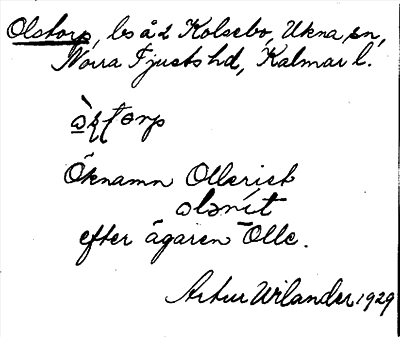 Olstorp, ls å 2 Kolsebo, Ukna sn,
Norra Tjusts hd, Kalmar l.
Öknamn Olleriet
efter ägaren Olle.
Artur Wilander 1929